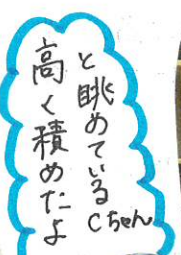 高く積めたよ
と眺めているCちゃん